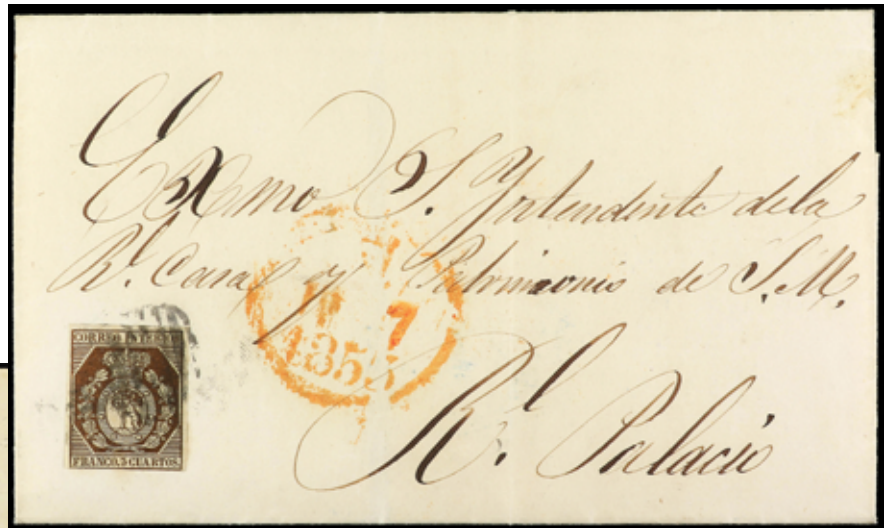 Exmo S. Yntendente de la
Rl. Casa y Patrimonio de S.M.
7
1853
Rl. Palacio
CORREO INTERIOR
FRANCO. 3 CUARTOS.